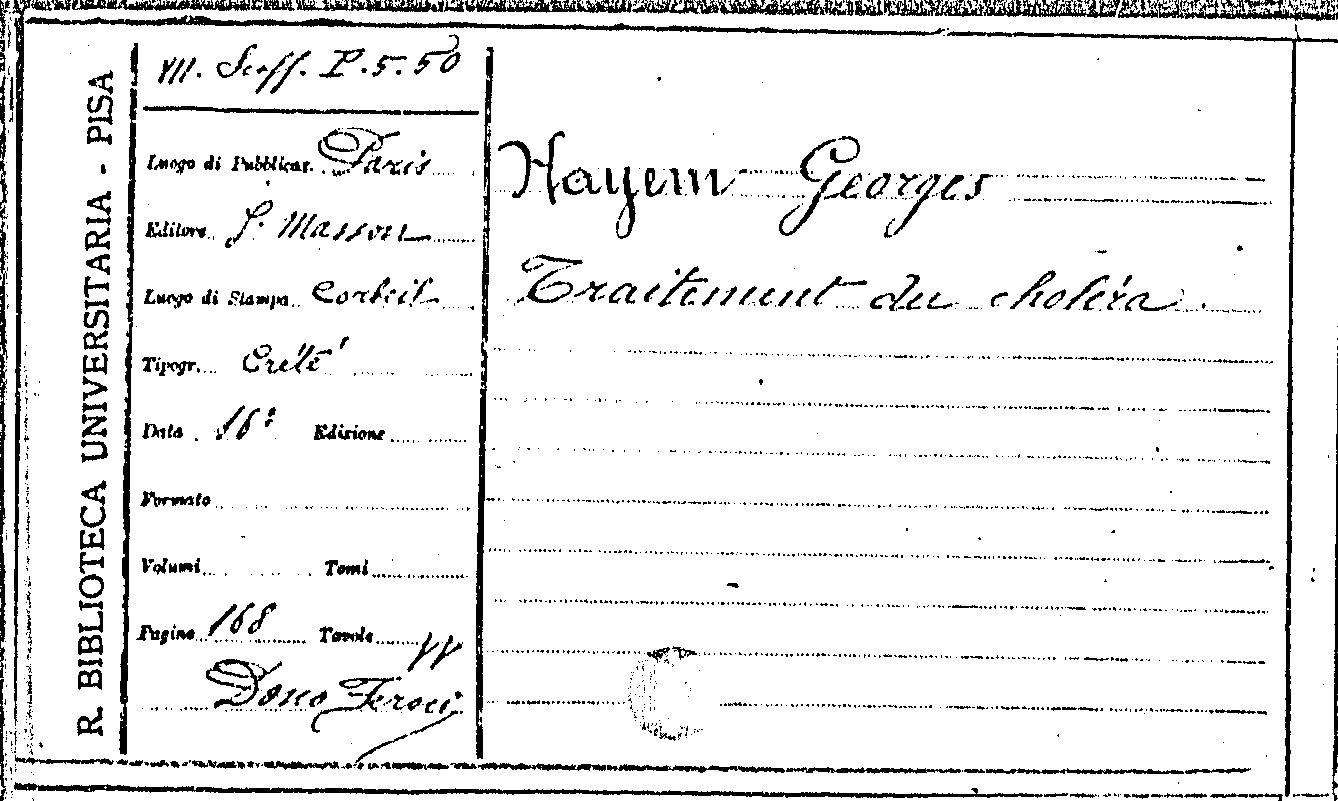 R. BIBLIOTECA UNIVERSITARIA - PISA
Scaff. P.5.50
Luogo di Pubblicaz. Paris
Editore G. Masson
Luogo di Stampa Corbeil
Tipogr. Crété
Data 16° Edizione
Formato
Volumi Tomi
Pagine 168 Tavole
Dono Feroci
Hayem Georges
Traitement du choléra